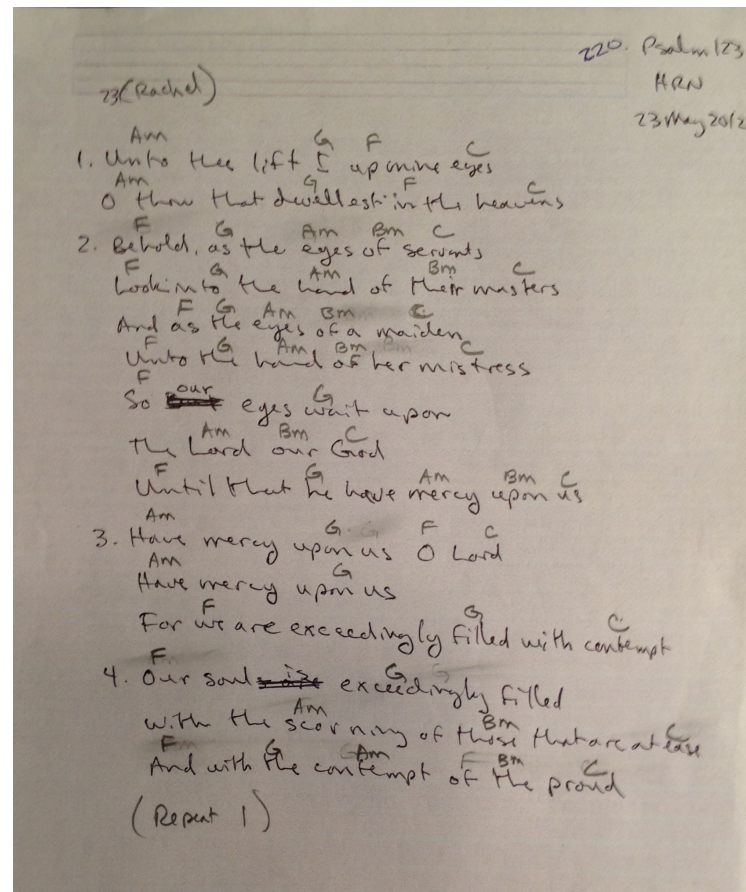 220. Psalm 123
HRN
23 May 2012
23 (Rachel)
Am G F C
1. Unto thee lift I up mine eyes
Am G F C
O thou that dwellest in the heavens
F G Am Bm C
2. Behold, as the eyes of servants
F G Am Bm C
Look into the hand of their masters
F G Am Bm C
And as the eyes of a maiden
F G Am Bm C
Unto the hand of her mistress
F G
So our eyes wait upon
Am Bm C
The Lord our God
F G Am Bm C
Until that he have mercy upon us
Am G F C
3. Have mercy upon us O Lord
Am G
Have mercy upon us
F G C
For we are exceedingly filled with contempt
F G
4. Our soul is exceedingly filled
Am Bm C
with the scorning of those that are at ease
F G Am Bm C
And with the contempt of the proud
(Repeat 1)